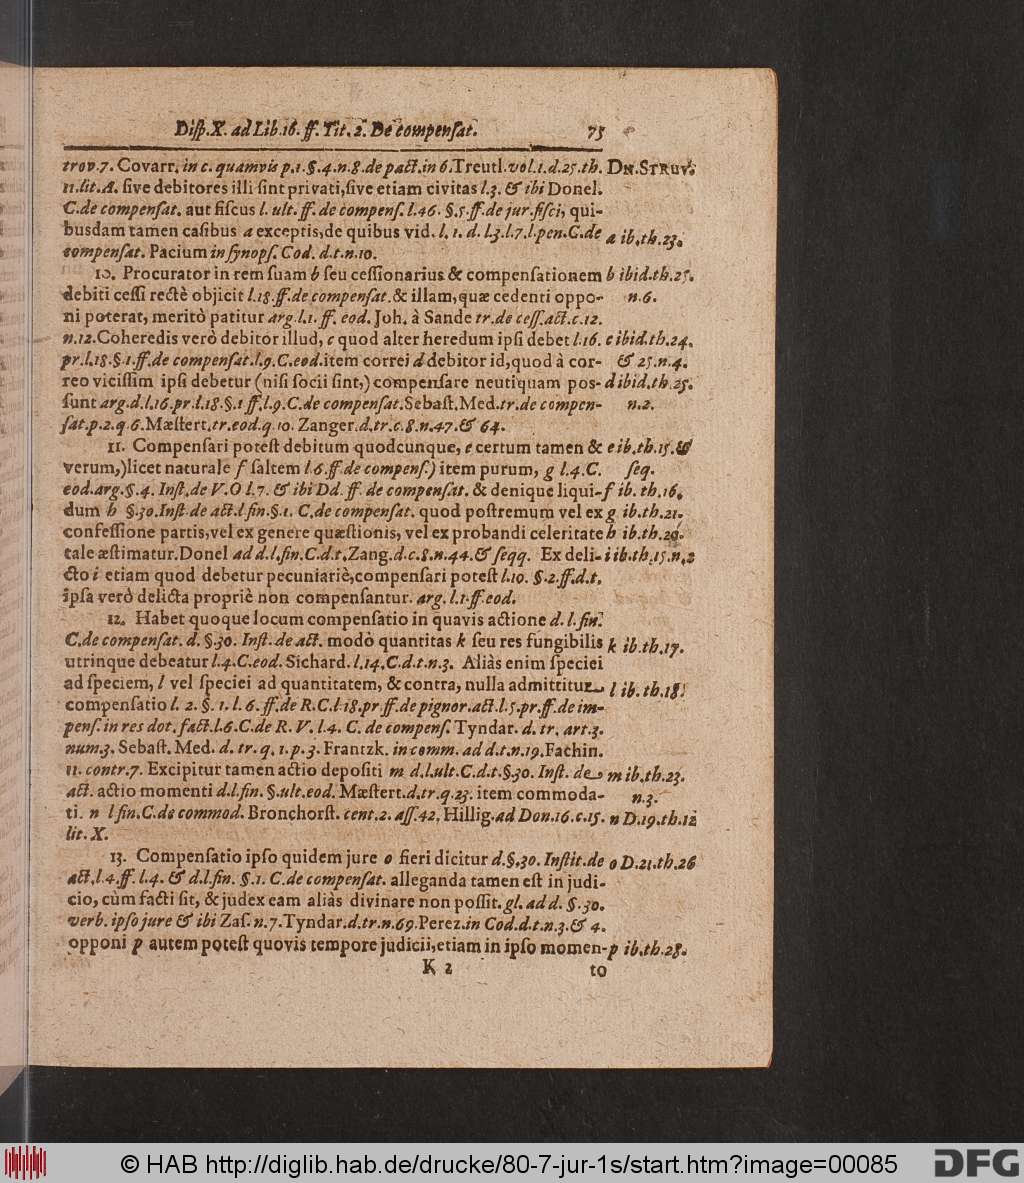 Disp. X. ad Lib. 16. ff. Tit. 2. De compensat. 75
trov. 7. Covarr. in c. quamvis p. 1. §. 4. n. 8. de pact. in 6. Treutl. vol. 1. d. 25. th. DN. STRUV.
11. lit. A. ſive debitores illi ſint privati, ſive etiam civitas l. 3. & ibi Donel.
C. de compenſat. aut fiſcus l. ult. ff. de compenſ. l. 46. §. 5. ff. de jur. fiſci, qui-
busdam tamen caſibus a exceptis, de quibus vid. l. 1. d. l. 3. l. 7. l. pen. C. de a ib. th. 23.
compenſat. Pacium in ſynopſ. Cod. d. t. n. 10.
10. Procurator in rem ſuam b ſeu ceſſionarius & compenſationem b ibid. th. 25.
debiti ceſſi rectè objicit l. 18. ff. de compenſat. & illam, quæ cedenti oppo- n. 6.
ni poterat, meritò patitur arg. l. 1. ff. eod. Joh. à Sande tr. de ceſſ. act. c. 12.
n. 12. Coheredis verò debitor illud, c quod alter heredum ipſi debet l. 16. c ibid. th. 24.
pr. l. 18. §. 1. ff. de compenſat. l. 9. C. eod. item correi d debitor id, quod à cor- & 25. n. 4.
reo viciſſim ipſi debetur (niſi ſocii ſint,) compenſare neutiquam pos- d ibid. th. 25.
ſunt arg. d. l. 16. pr. l. 18. §. 1 ff. l. 9. C. de compenſat. Sebaſt. Med. tr. de compen- n. 2.
ſat. p. 2. q. 6. Mæſtert. tr. eod. q. 10. Zanger. d. tr. c. 8. n. 47. & 64.
11. Compenſari poteſt debitum quodcunque, e certum tamen & e ib. th. 15. &
verum,) licet naturale f ſaltem l. 6. ff. de compenſ.) item purum, g l. 4. C. ſeq.
eod. arg. §. 4. Inſt. de V. O l. 7. & ibi Dd. ff. de compenſat. & denique liqui- f ib. th. 16.
dum h §. 30. Inſt. de act. l. fin. §. 1. C. de compenſat. quod poſtremum vel ex g ib. th. 21.
confeſſione partis, vel ex genere quæſtionis, vel ex probandi celeritate h ib. th. 20.
tale æſtimatur. Donel ad d. l. fin. C. d. t. Zang. d. c. 8. n. 44. & ſeqq. Ex deli- i ib. th. 15. n. 2
cto i etiam quod debetur pecuniariè, compenſari poteſt l. 10. §. 2. ff. d. t.
ipſa verò delicta propriè non compenſantur. arg. l. 1. ff. eod.
12. Habet quoque locum compenſatio in quavis actione d. l. fin.
C. de compenſat. d. §. 30. Inſt. de act. modò quantitas k ſeu res fungibilis k ib. th. 17.
utrinque debeatur l. 4. C. eod. Sichard. l. 14. C. d. t. n. 3. Aliàs enim ſpeciei
ad ſpeciem, l vel ſpeciei ad quantitatem, & contra, nulla admittitur l ib. th. 18.
compenſatio l. 2. §. 1. l. 6. ff. de R. C. l. 18. pr. ff. de pignor. act. l. 5. pr. ff. de im-
penſ. in res dot. fact. l. 6. C. de R. V. l. 4. C. de compenſ. Tyndar. d. tr. art. 3.
num. 3. Sebaſt. Med. d. tr. q. 1. p. 3. Frantzk. in comm. ad d. t. n. 19. Fachin.
11. contr. 7. Excipitur tamen actio depoſiti m d. l. ult. C. d. t. §. 30. Inſt. de m ib. th. 23.
act. actio momenti d. l. fin. §. ult. eod. Mæſtert. d. tr. q. 23. item commoda- n. 3.
ti. n l. fin. C. de commod. Bronchorſt. cent. 2. aſſ. 42. Hillig. ad Don. 16. c. 15. n D. 19. th. 12
lit. X.
13. Compenſatio ipſo quidem jure o fieri dicitur d. §. 30. Inſtit. de o D. 21. th. 26
act. l. 4. ff. l. 4. & d. l. fin. §. 1. C. de compenſat. alleganda tamen eſt in judi-
cio, cùm facti ſit, & judex eam aliàs divinare non poſſit. gl. ad d. §. 30.
verb. ipſo jure & ibi Zaſ. n. 7. Tyndar. d. tr. n. 69. Perez. in Cod. d. t. n. 3. & 4.
opponi p autem poteſt quovis tempore judicii, etiam in ipſo momen- p ib. th. 28.
K 2 to
© HAB http://diglib.hab.de/drucke/80-7-jur-1s/start.htm?image=00085 DFG